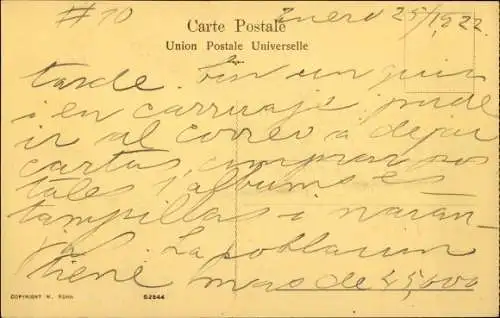 #10
Carte Postale
Enero 25/1922
Union Postale Universelle
tarde. Con un guia
i en carruaje pude
ir al correo a dejar
cartas, comprar pos
tales i albums es
tampillas i naran
jas. La poblacion
tiene mas de 25,000
COPYRIGHT M. ROMA
62644